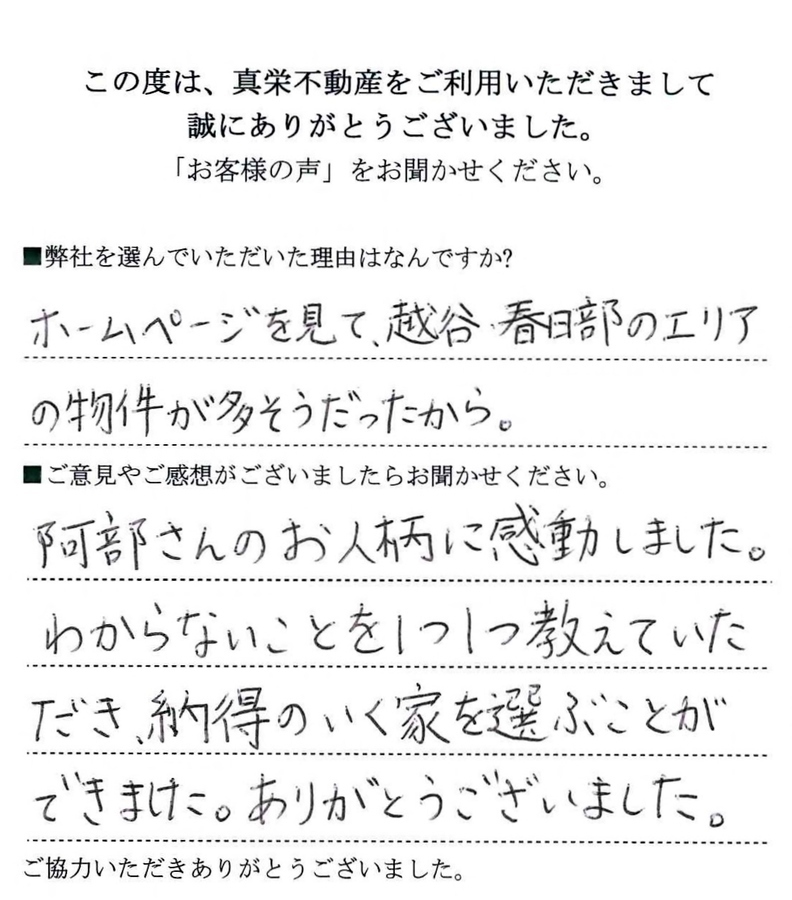 この度は、真栄不動産をご利用いただきまして
誠にありがとうございました。
「お客様の声」をお聞かせください。
■弊社を選んでいただいた理由はなんですか?
ホームページを見て、越谷・春日部のエリア
の物件が多そうだったから。
■ご意見やご感想がございましたらお聞かせください。
阿部さんのお人柄に感動しました。
わからないことを1つ1つ教えていた
だき、納得のいく家を選ぶことが
できました。ありがとうございました。
ご協力いただきありがとうございました。